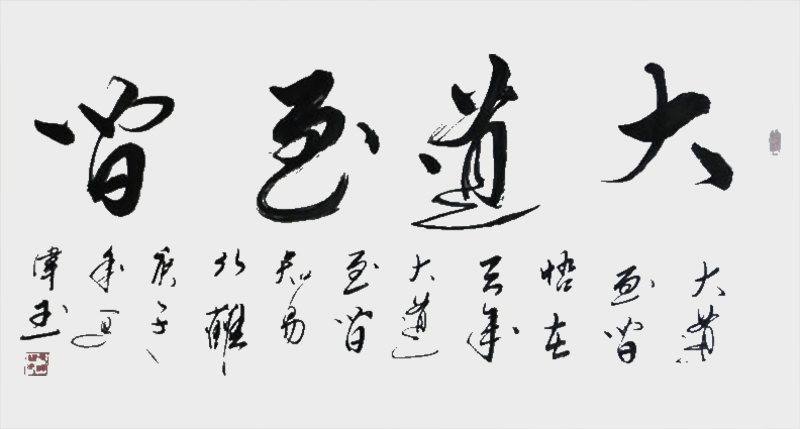 大道至简
大道
至简
悟在
天成
大道
至简
知易
行難
庚子
年夏